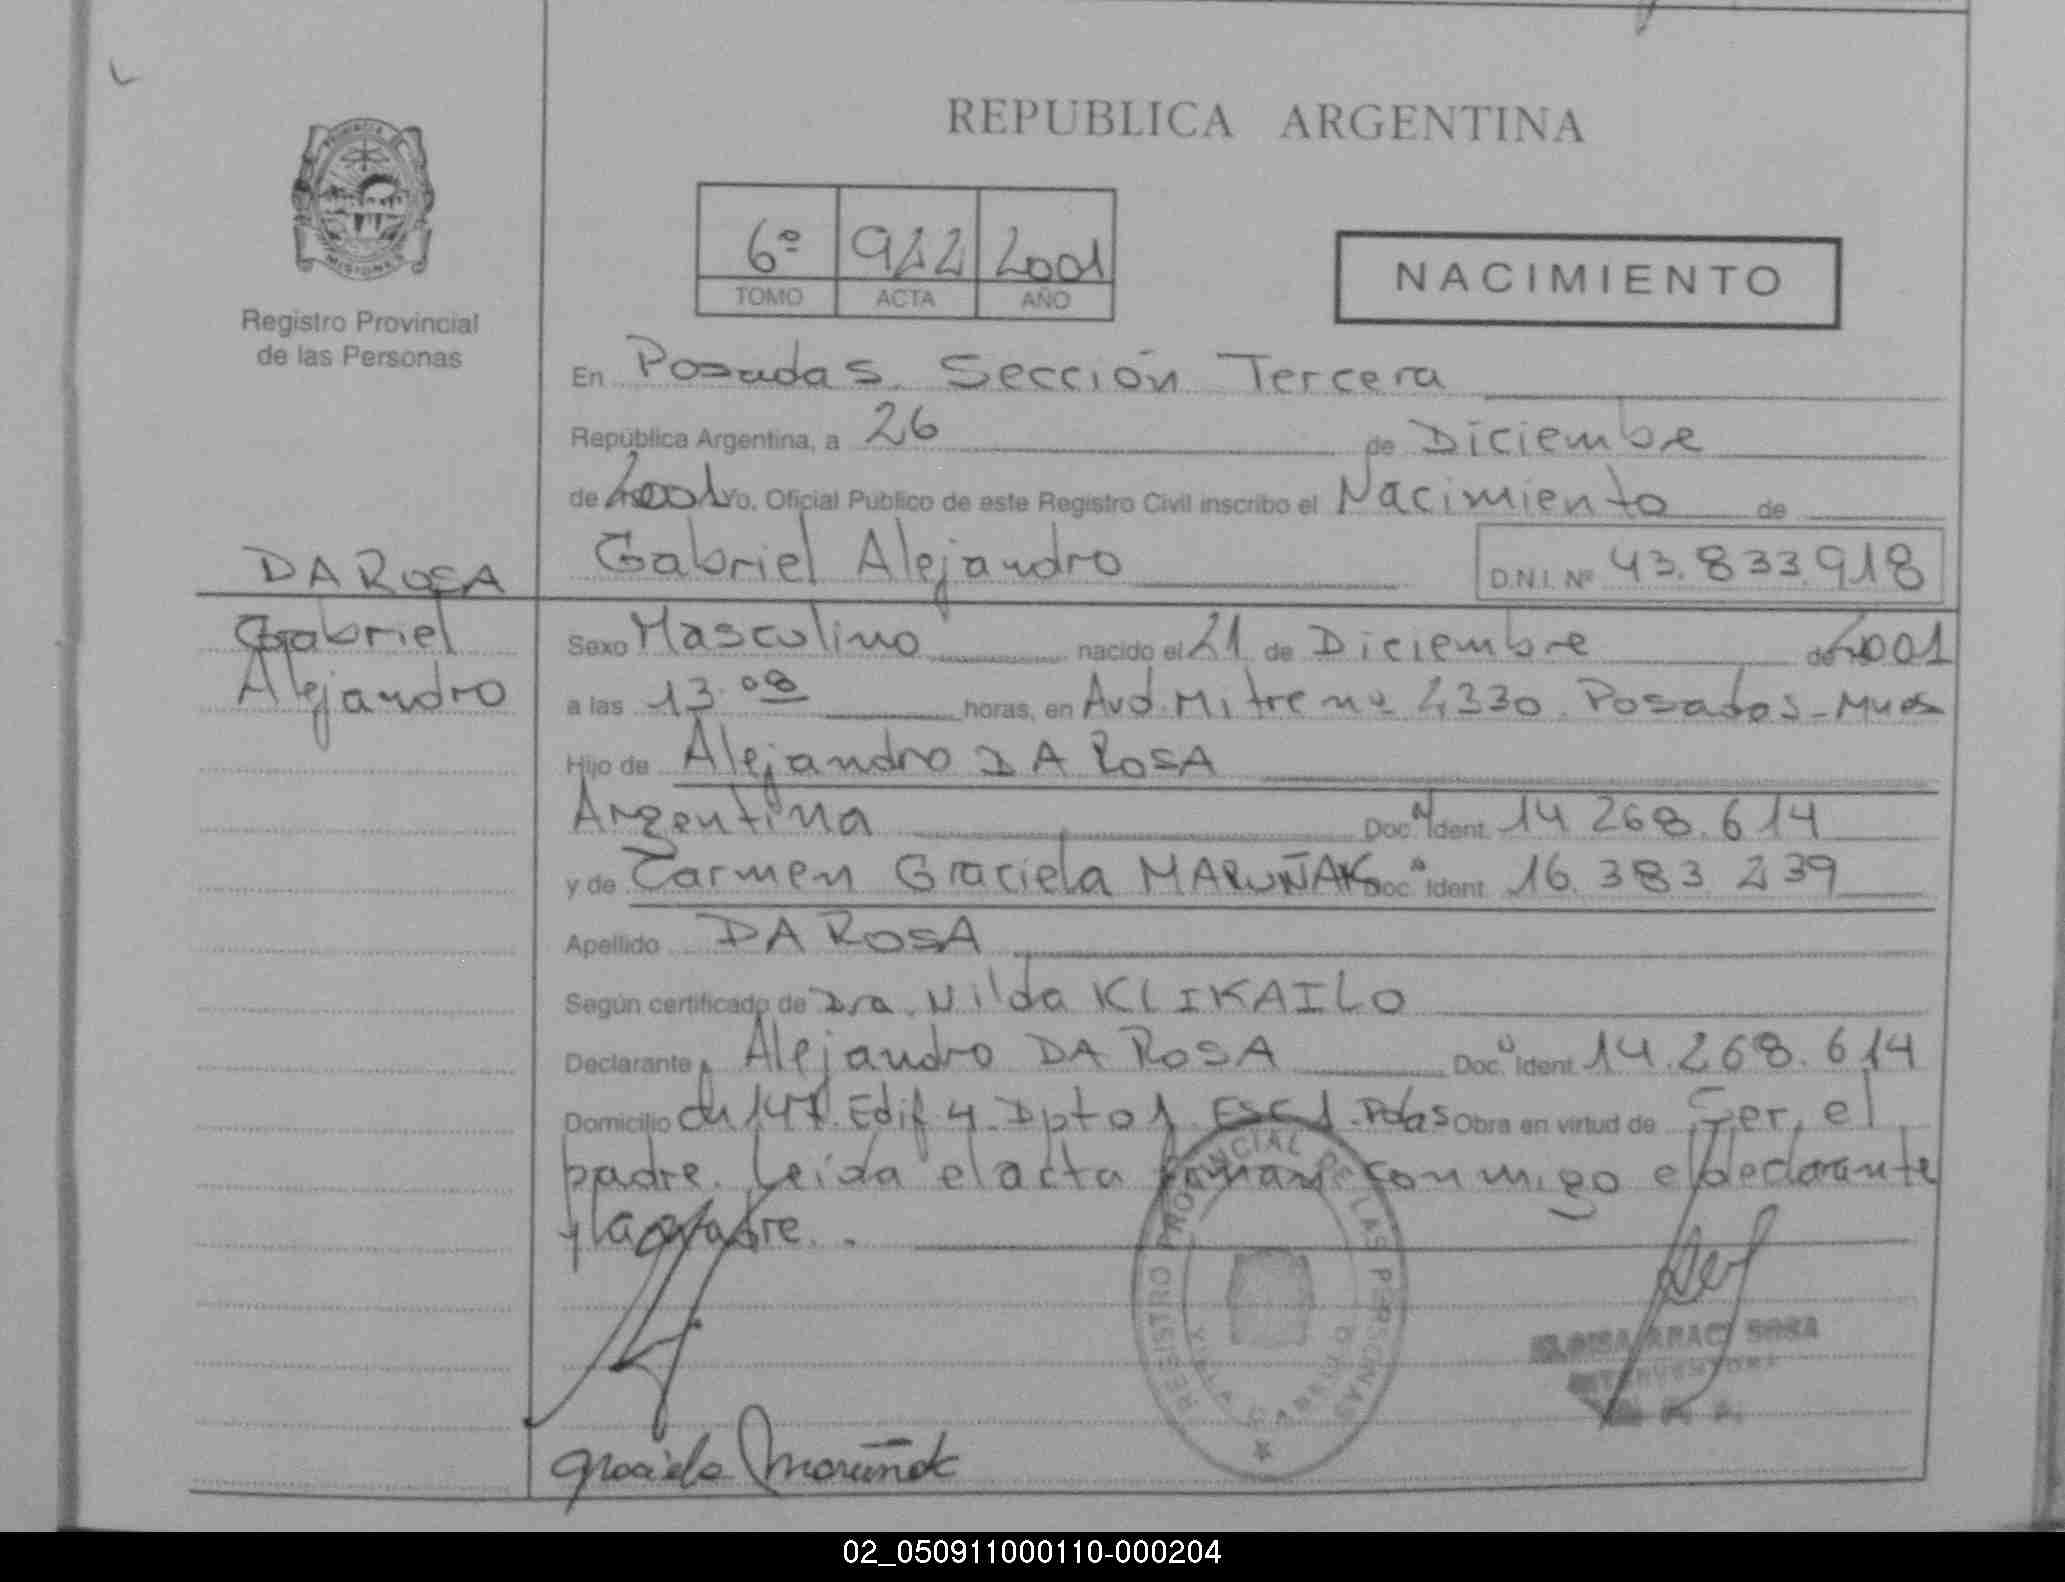 REPUBLICA ARGENTINA
PROVINCIA
MISIONES
Registro Provincial
de las Personas
6º 922 2001
TOMO ACTA AÑO
NACIMIENTO
En Posadas. Sección Tercera
República Argentina, a 26 de Diciembre
de 2001 Yo, Oficial Público de este Registro Civil inscribo el Nacimiento de
Gabriel Alejandro D.N.I. Nº 43.833.918
DA ROSA
Gabriel
Alejandro
Sexo Masculino nacido el 21 de Diciembre de 2001
a las 13.08 horas, en Avd. Mitre nº 2330. Posadas-Mnes
Hijo de Alejandro DA ROSA
Argentina Doc. Ident. 14 268.614
y de Carmen Graciela MARUÑAK Doc. Ident. 16.383.239
Apellido DA ROSA
Según certificado de Dra. Nilda KLIKAILO
Declarante Alejandro DA ROSA Doc. Ident. 14.268.614
Domicilio Edif 4. Dpto 1 ESC 1. Pdas Obra en virtud de Ser, el
padre. Leida el acta firman conmigo el declarante
y la madre.
REGISTRO PROVINCIAL DE LAS PERSONAS
Graciela Maruñak
SOSA
02_050911000110-000204